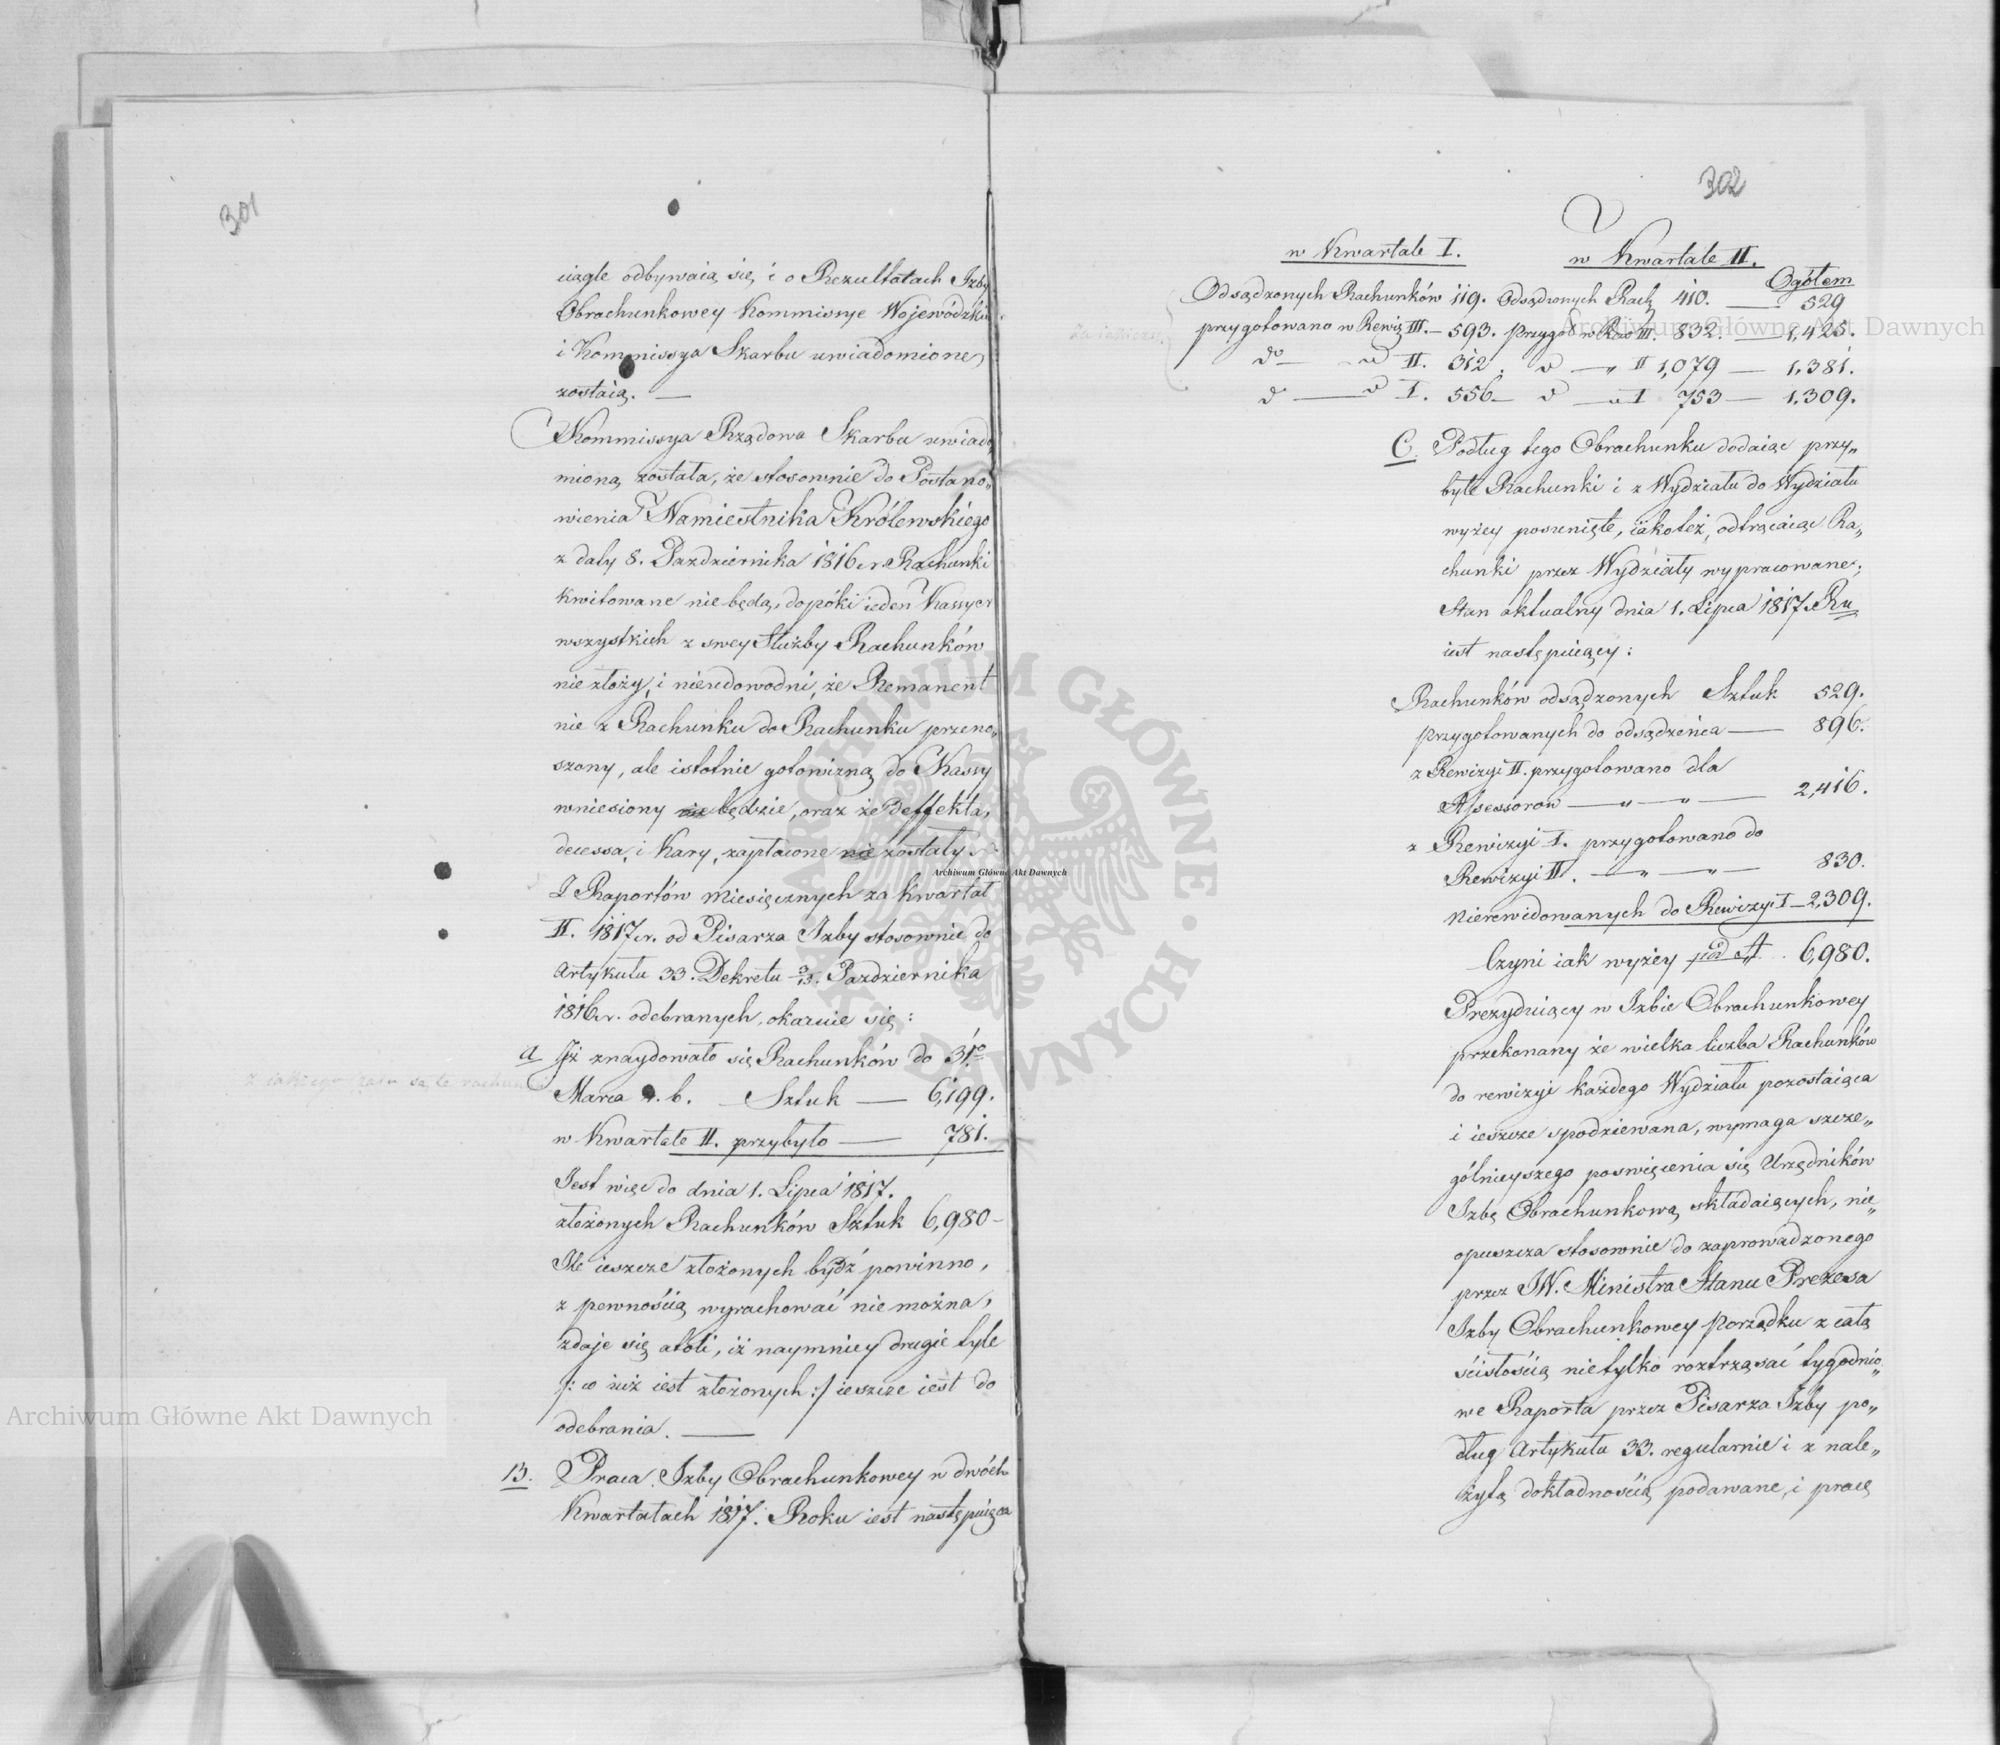 301
ciągle odbywaią się, i o Rezultatach Izby
Obrachunkowey Kommissye Wojewódzkie
i Kommissya Skarbu uwiadomione
zostaią. —
Kommissya Rządowa Skarbu uwiado„
mioną została, że stosownie do Postano„
wienia Namiestnika Królewskiego
z daty 8. Pazdziernika 1816.r. Rachunki
kwitowane nie będą, dopóki ieden Kassyer
wszystkich z swey Służby Rachunków
nie złoży, i nieudowodni, że Remanent
nie z Rachunku do Rachunku przeno„
szony, ale istotnie gotowizną do Kassy
wniesiony nie będzie, oraz że Deffekta,
decessa, i Kary, zapłacone nie zostały.
Z Raportów Miesięcznych za kwartał
II. 1817.r. od Pisarza Izby stosownie do
Artykułu 33. Dekretu 3/13. Pazdziernika
1816.r. odebranych, okazuie się:
a Iż znaydowało się Rachunków do 31º
z iakiego czasu są te rachunki
Marca r. b. — Sztuk — 6,199.
w Kwartale II. przybyło — 781.
Iest więc do dnia 1. Lipca 1817.
złożonych Rachunków Sztuk 6,980 –
Ile ieszcze złożonych bydź powinno,
z pewnością wyrachować nie można,
zdaje się atoli, iż naymniey drugie tyle
/: co iuż iest złożonych :/ ieszcze iest do
odebrania. —
B. Praca Izby Obrachunkowey w dwóch
Kwartałach 1817. Roku iest następuiąca
302
w Kwartale I. w Kwartale II.
Ogółem
Odsądzonych Rachunków 119. Odsądzonych Rach 410. — 529
przygotowano w Rewiz III. – 593. Przygot w Rew III. 832. — 1,425.
dº — „ II. 312. d — „ II 1,079 — 1,381.
d — d I. 556 – d — „ I 753 — 1,309.
C. Podług tego Obrachunku dodaiąc przy„
byłe Rachunki i z Wydziału do Wydziału
wyżey posunięte, iakoteż, odtrącaiąc Ra„
chunki przez Wydziały wypracowane;
Stan aktualny dnia 1. Lipca 1817. Ru
iest następuiący:
Rachunków odsądzonych Sztuk 529.
Przygotowanych do odsądzenia — 896.
z Rewizyi II. przygotowano dla
Assessorow — „ — „ — 2,416.
z Rewizyi I. przygotowano do
Rewizyi II. — „ — „ — 830.
Nierewidowanych do Rewizyi I – 2,309.
Czyni iak wyżey pod A. 6,980.
Prezyduiący w Izbie Obrachunkowey
przekonany że wielka liczba Rachunków
do rewizyi każdego Wydziału pozostaiąca
i ieszcze spodziewana, wymaga szcze„
gólnieyszego poswięcenia się Urzędników
Izbę Obrachunkową składaiących, nie„
opuszcza stosownie do zaprowadzonego
przez JW. Ministra Stanu Prezesa
Izby Obrachunkowey Porządku z całą
ścisłością nietylko roztrząsać tygodnio„
we Raporta przez Pisarza Izby po„
dług Artykułu 33. regularnie i z nale„
żytą dokładnością podawane, i pracę
Archiwum Główne Akt Dawnych
Archiwum Główne Akt Dawnych
Archiwum Główne Akt Dawnych
ARCHIWUM GŁÓWNE AKT DAWNYCH